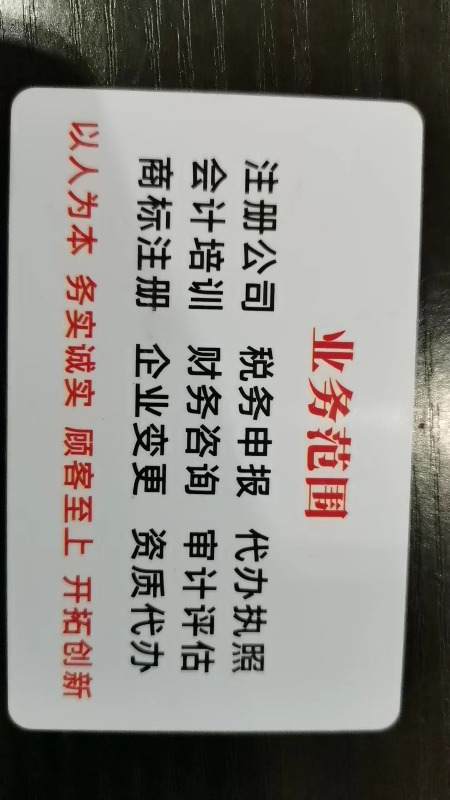 业务范围
注册公司 税务申报 代办执照
会计培训 财务咨询 审计评估
商标注册 企业变更 资质代办
以人为本 务实诚实 顾客至上 开拓创新